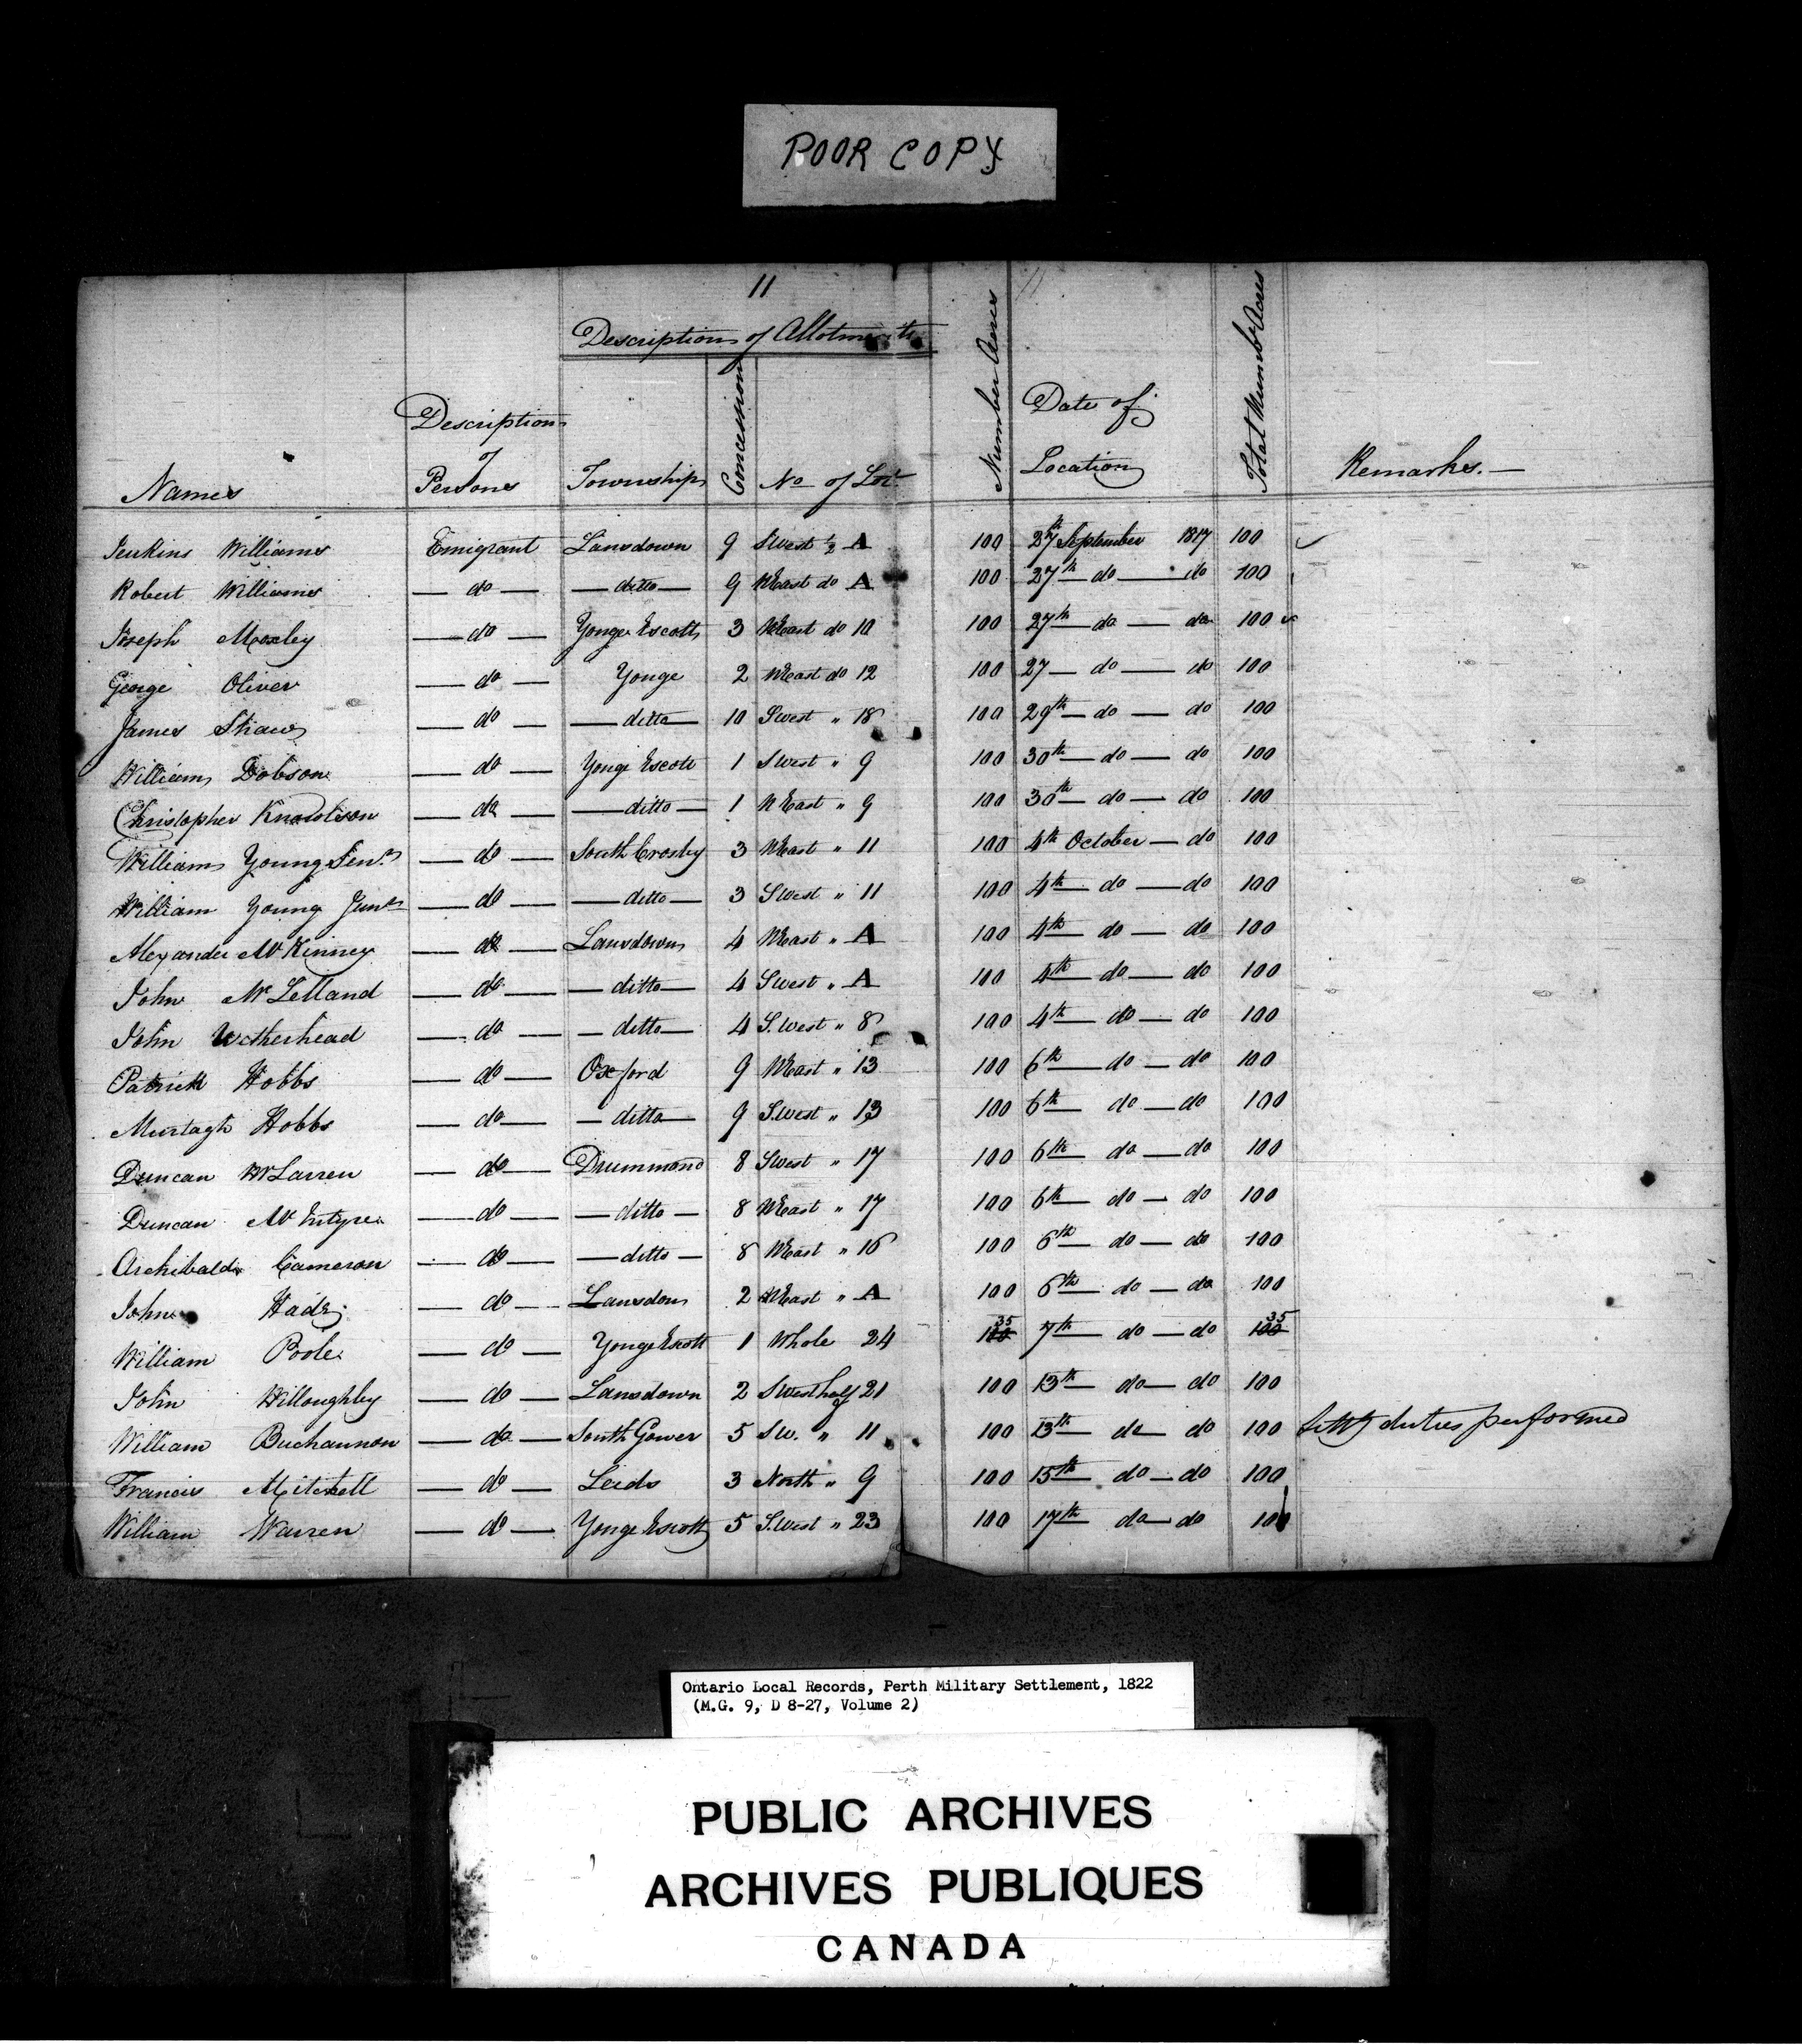 POOR COPY
11
Description of Allotments
Names
Description of Persons
Township
Concession
No of Lot
Number Acres
Date of Location
Total Number Acres
Remarks.—
Jenkins Williams Emigrant Lansdown 9 SWest ½ A 100 27th September 1817 100
Robert Williams — do — — ditto — 9 NEast do A 100 27th — do — do 100
Joseph Moxley — do — Yonge Escott 3 NEast do 10 100 27th — do — do 100
George Oliver — do — Yonge 2 NEast do 12 100 27 — do — do 100
James Shaw — do — — ditto — 10 SWest " 18 100 29th — do — do 100
William Dobson — do — Yonge Escott 1 SWest " 9 100 30th — do — do 100
Christopher Knowlson — do — — ditto — 1 NEast " 9 100 30th — do — do 100
William Young Senr — do — South Crosby 3 NEast " 11 100 4th October — do 100
William Young Junr — do — — ditto — 3 SWest " 11 100 4th — do — do 100
Alexander McKinney — do — Lansdown 4 NEast " A 100 4th — do — do 100
John McLelland — do — — ditto — 4 SWest " A 100 4th — do — do 100
John Wetherhead — do — — ditto — 4 S.West " 8 100 4th — do — do 100
Patrick Hobbs — do — Oxford 9 NEast " 13 100 6th — do — do 100
Murtagh Hobbs — do — — ditto — 9 S.West " 13 100 6th — do — do 100
Duncan McLaren — do — Drummond 8 SWest " 17 100 6th — do — do 100
Duncan McIntyre — do — — ditto — 8 NEast " 17 100 6th — do — do 100
Archibald Cameron — do — — ditto — 8 NEast " 16 100 6th — do — do 100
John — do — Lansdon 2 NEast " A 100 6th — do — do 100
William Poole — do — Yonge Escott 1 Whole 24 100 35 7th — do — do 100 35
John Willoughby — do — Lansdown 2 SWest half 21 100 13th — do — do 100
William Buchannon — do — South Gower 5 SW. " 11 100 13th do — do 100 duties performed
Francis Mitchell — do — Leeds 3 North " 9 100 15th do — do 100
William Warren — do — Yonge Escott 5 S.West " 23 100 17th do — do 100
Ontario Local Records, Perth Military Settlement, 1822
(M.G. 9, D 8-27, Volume 2)
PUBLIC ARCHIVES
ARCHIVES PUBLIQUES
CANADA